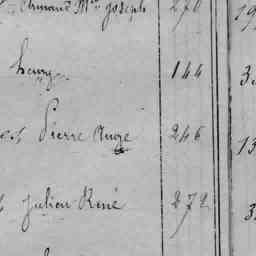 Armand Mie Joseph 270 19
henry 144 3
Pierre Ange 246 13
Julien René 272 3